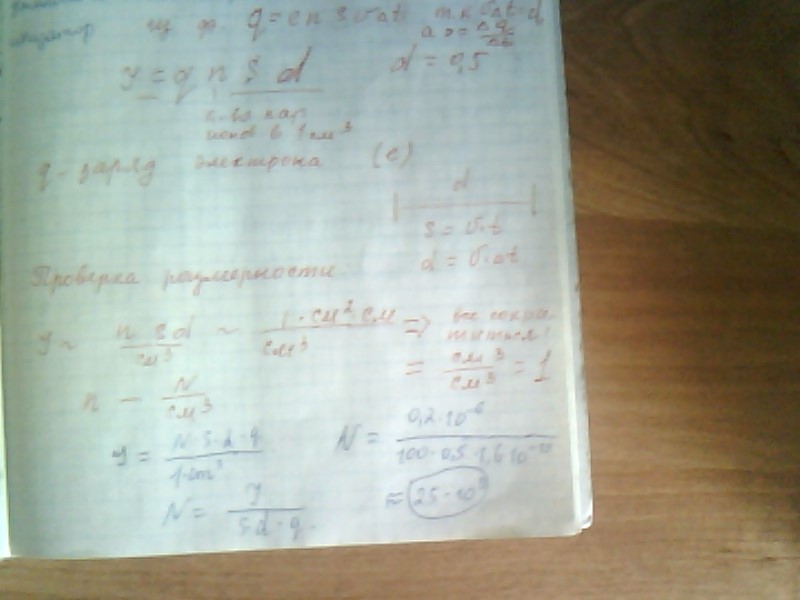 из ф. q = e n S υ Δt т.к υΔt = d
Δq
Δt
y = q n S d
d = 0,5
к-во пар
ионов в 1 см³
q - заряд электрона (e)
d
S = υ·t
d = υ·Δt
Проверка размерности
y ~ n s d / см³ ~ 1·см²·см / см³ =>
= см³ / см³ = 1
n — N / см³
y = N·S·d·q / 1·cm³
N = 0,2·10⁻⁶ / 100·0,5·1,6·10⁻¹⁹
N = y / S·d·q
≈ 25·10⁹